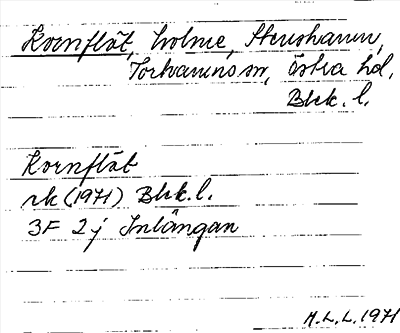 Kornflöt, holme, Stenshamn,
Torhamns sn, Östra hd,
Blek. l.
Kornflöt
rk (1971) Blek. l.
3F 2j Inlängan
A.L.L. 1971